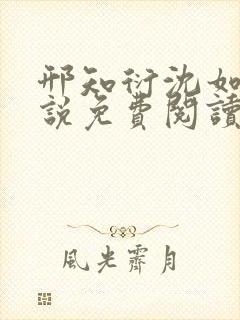 邢知衍沈如
說免費閱讀
風光霽月